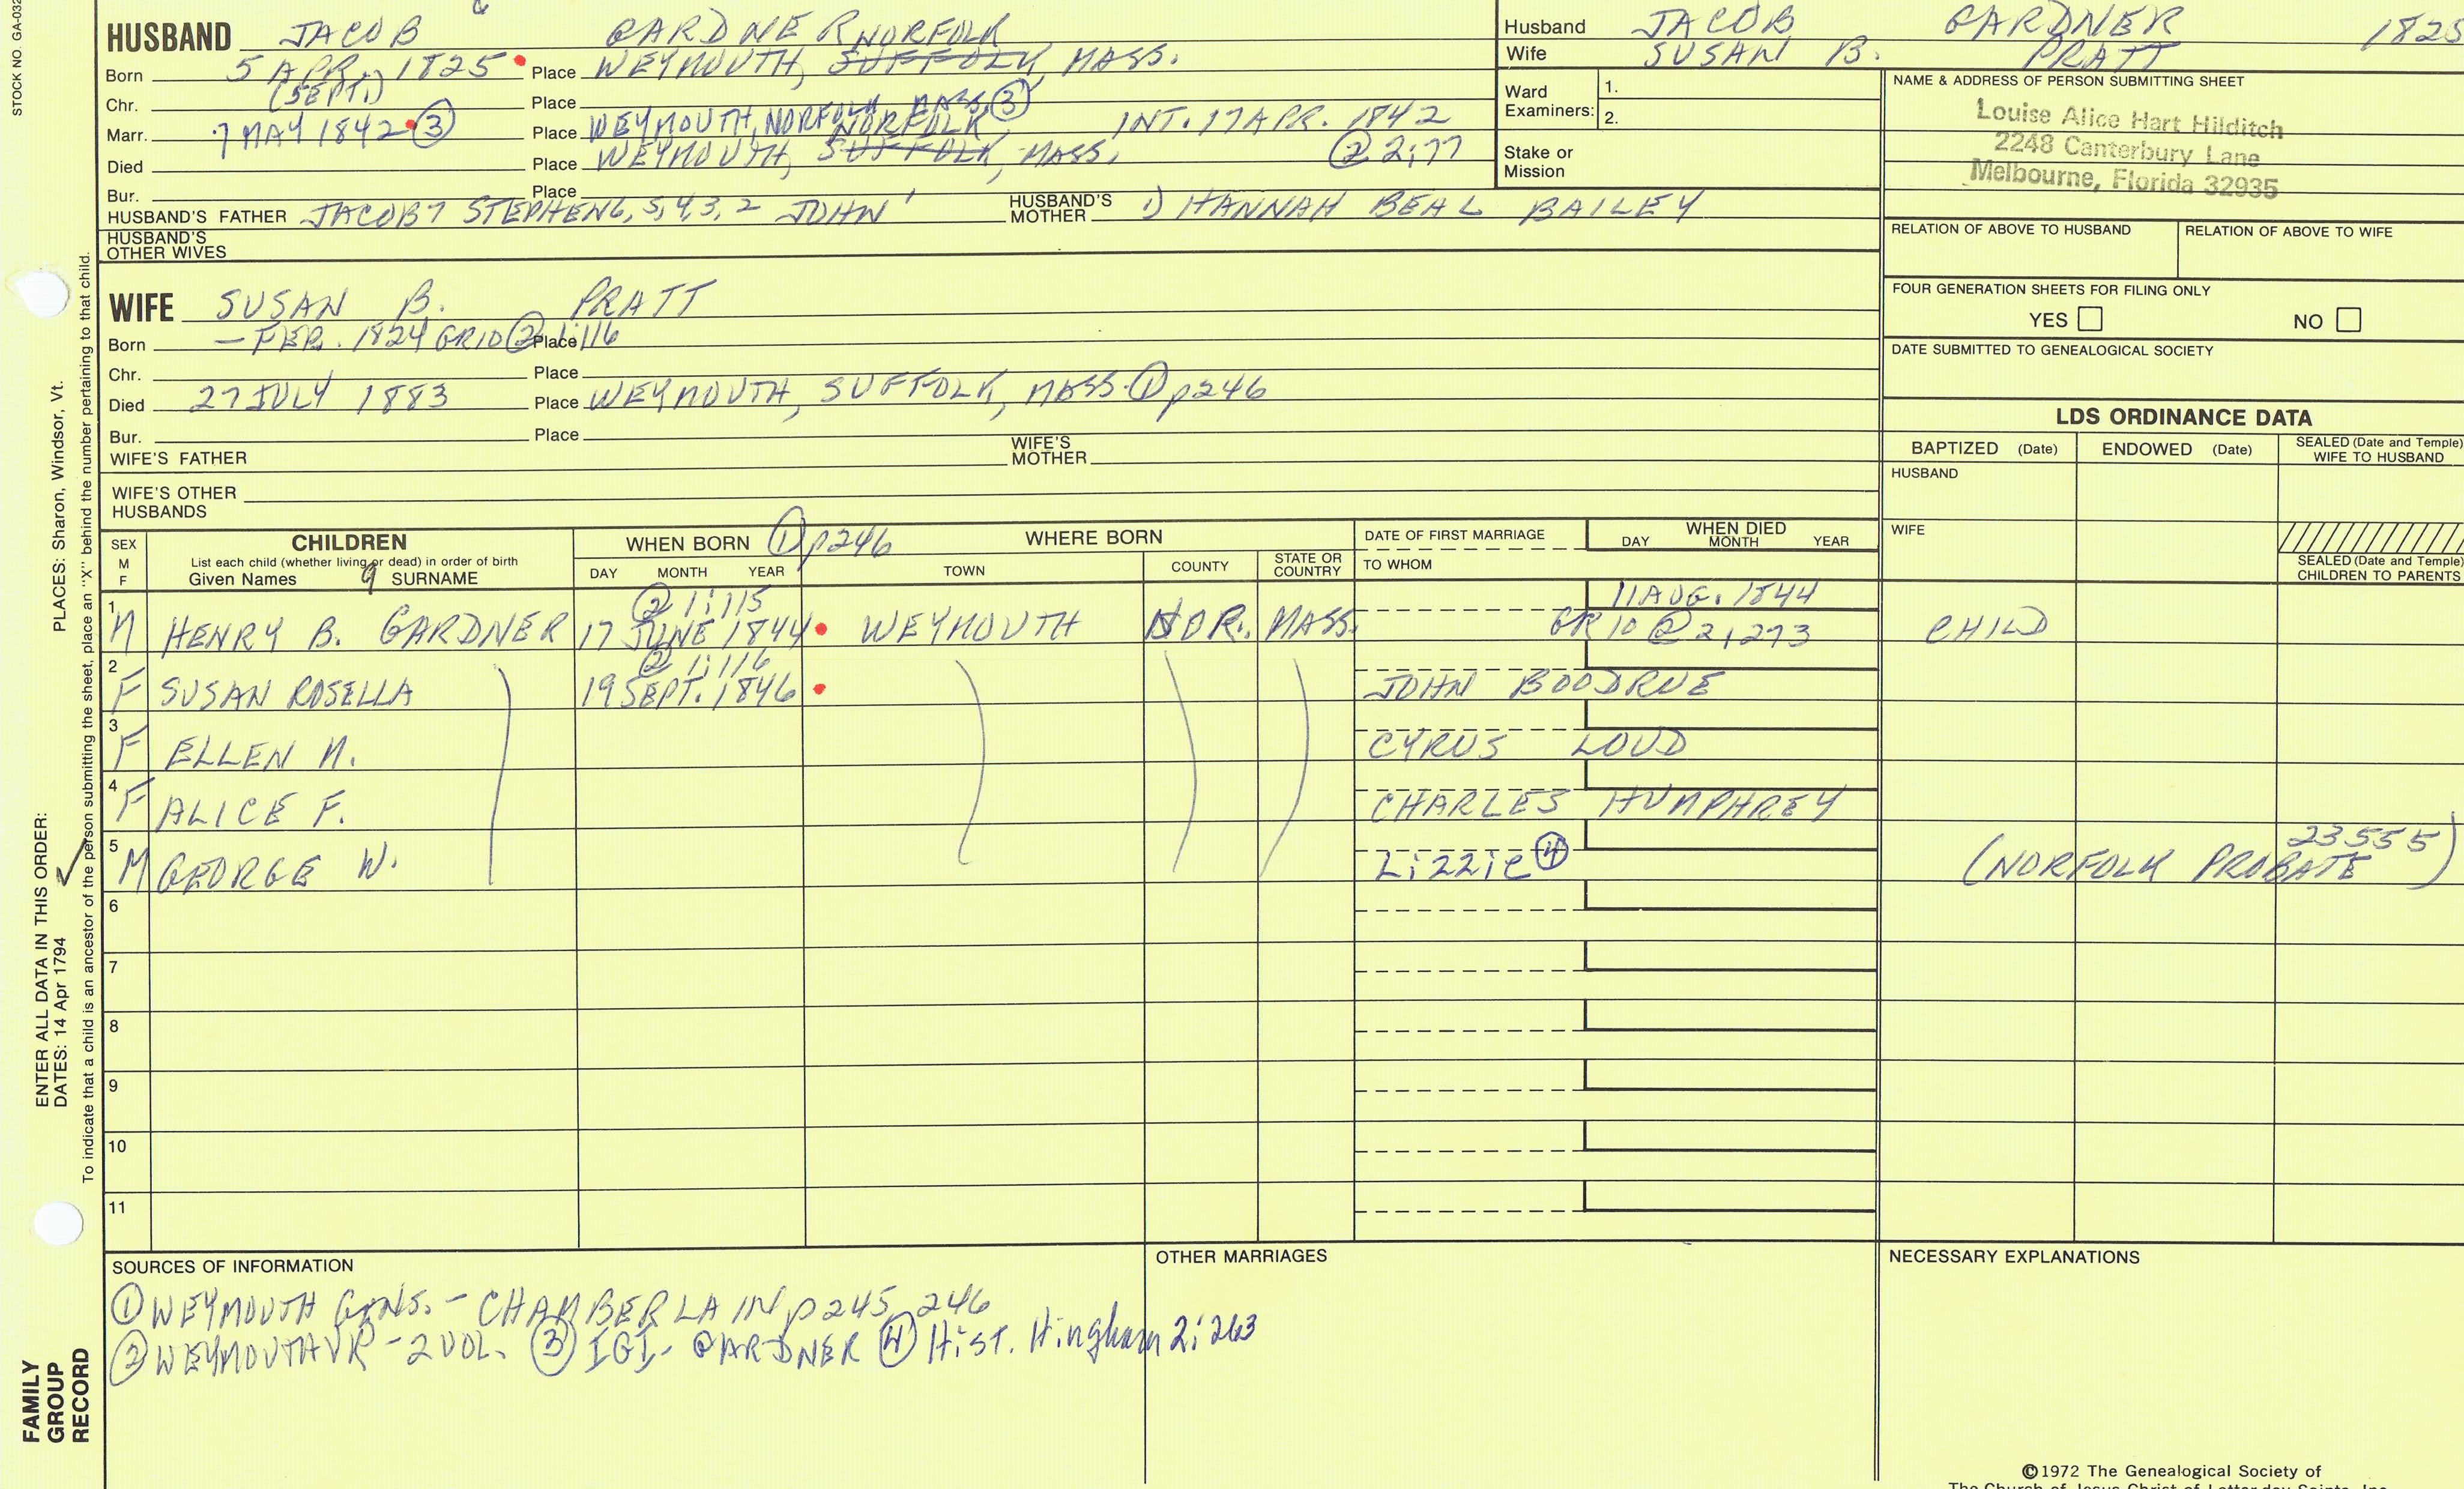 STOCK NO. GA-032
HUSBAND JACOB GARDNER
NORFOLK
Born 5 APR. 1825 Place WEYMOUTH, SUFFOLK, MASS.
(SEPT.)
Chr. Place
WEYMOUTH, NORFOLK, MASS. ③
Marr. 7 MAY 1842 ③ Place NORFOLK INT. 17 APR. 1842
Died Place WEYMOUTH, SUFFOLK, MASS. ② 2:77
Bur. Place
HUSBAND'S FATHER JACOB7 STEPHEN6,5,4,3,2 JOHN' HUSBAND'S MOTHER 1) HANNAH BEAL BAILEY
HUSBAND'S OTHER WIVES
WIFE SUSAN B. PRATT
Born — FEB. 1824 GR10 ② Place 1:116
Chr. Place
Died 27 JULY 1883 Place WEYMOUTH, SUFFOLK, MASS. ① p246
Bur. Place
WIFE'S FATHER WIFE'S MOTHER
WIFE'S OTHER HUSBANDS
Husband JACOB GARDNER 1825
Wife SUSAN B. PRATT
Ward Examiners: 1.
2.
Stake or Mission
NAME & ADDRESS OF PERSON SUBMITTING SHEET
Louise Alice Hart Hilditch
2248 Canterbury Lane
Melbourne, Florida 32935
RELATION OF ABOVE TO HUSBAND RELATION OF ABOVE TO WIFE
FOUR GENERATION SHEETS FOR FILING ONLY
YES NO
DATE SUBMITTED TO GENEALOGICAL SOCIETY
LDS ORDINANCE DATA
BAPTIZED (Date) ENDOWED (Date) SEALED (Date and Temple) WIFE TO HUSBAND
HUSBAND
WIFE
SEALED (Date and Temple) CHILDREN TO PARENTS
SEX M F CHILDREN WHEN BORN ① p246 WHERE BORN DATE OF FIRST MARRIAGE WHEN DIED
List each child (whether living or dead) in order of birth
Given Names SURNAME DAY MONTH YEAR TOWN COUNTY STATE OR COUNTRY TO WHOM DAY MONTH YEAR
② 1:115 11 AUG. 1844
1 M HENRY B. GARDNER 17 JUNE 1844 WEYMOUTH NOR. MASS. GR10 ② 2:273 CHILD
② 1:116
2 F SUSAN ROSELLA 19 SEPT. 1846 JOHN BOODRUE
3 F ELLEN M. CYRUS LOUD
4 F ALICE F. CHARLES HUMPHREY
5 M GEORGE W. Lizzie ④ (NORFOLK PROBATE 23555)
6
7
8
9
10
11
SOURCES OF INFORMATION
① WEYMOUTH GENS. - CHAMBERLAIN p245, 246
② WEYMOUTH VR - 2 VOL. ③ IGI - GARDNER ④ Hist. Hingham 2:263
OTHER MARRIAGES
NECESSARY EXPLANATIONS
©1972 The Genealogical Society of
The Church of Jesus Christ of Latter-day Saints, Inc.
ENTER ALL DATA IN THIS ORDER:
DATES: 14 Apr 1794 PLACES: Sharon, Windsor, Vt.
To indicate that a child is an ancestor of the person submitting the sheet, place an "X" behind the number pertaining to that child.
FAMILY
GROUP
RECORD